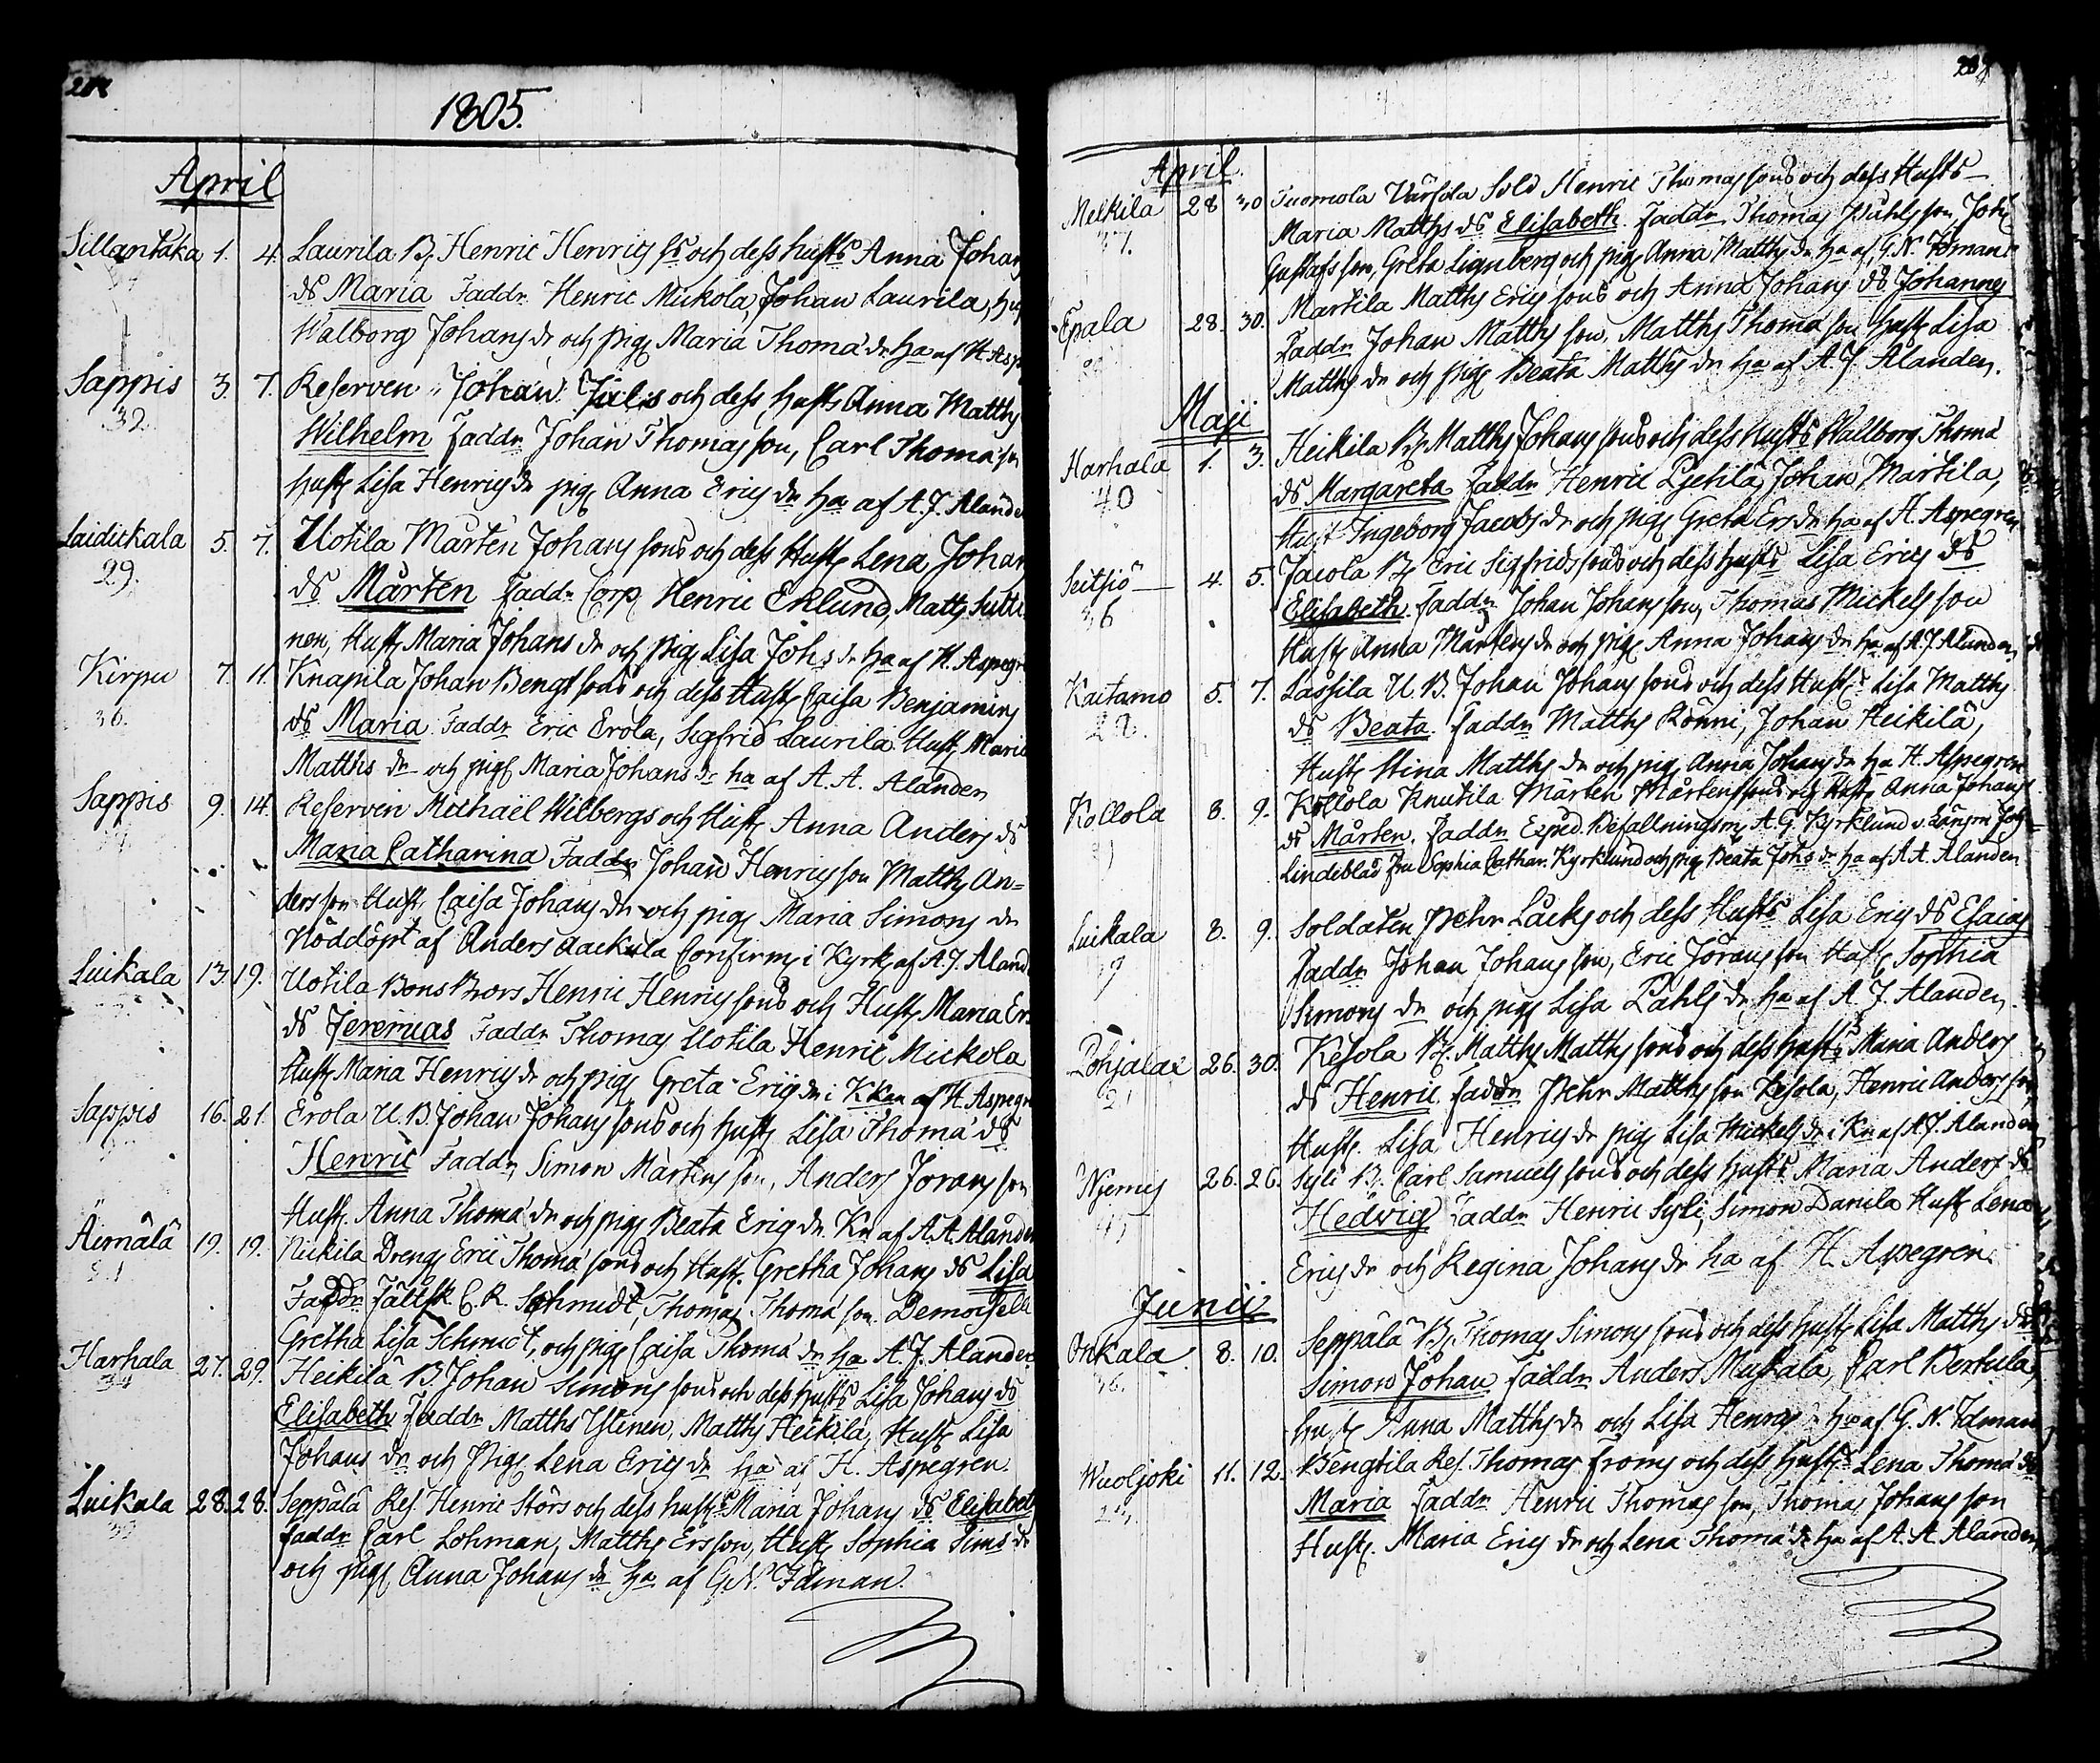 1805.
April
Sillantaka 1. 4. Laurila B. Henric Henrics s̅s och dess hustr̅s Anna Johan
ds Maria Faddr. Henric Mickola, Johan Laurila, hu
Walborg Johans dr och pig. Maria Thoma dr ha af H. Asp
Sappis 3. 7. Reserven Johan Juls och dess hust̅s Anna Matths
32 Wilhelm Faddr Johan Thomas son, Carl Thoma sn
hust. Lisa Henrics dr pig. Anna Erics dr ha af A. J. Aland
Laidickala 5. 7. Uotila Mårten Johans sons och dess Hust. Lena Johan
29. ds Mårten Faddr Corp. Henric Eklund, Matts Sutti
nen, Hust. Maria Johans dr och pig. Lisa Johs dr ha af H. Aspegr
Kirpu 7. 11. Knapila Johan Bengt sons och dess Hust. Caisa Benjamins
36. ds Maria Faddr Eric Erola, Sigfrid Laurila Hust. Mari
Matths dr och pig. Maria Johans dr ha af A. A. Alanden
Sappis 9. 14. Reserven Michaël Wilbergs och Hust. Anna Anders ds
Maria Catharina Faddr Johan Henrics son Matths An=
ders son Hust. Caisa Johans dr och pig. Maria Simons dr
Nöddöpt af Anders Aackula Confirm. i Kyrk. af A. J. Aland
Luikala 13. 19. Uotila Bons Brors Henric Henrics sons och Hust. Maria Er
ds Jeremias Faddr Thomas Uotila Henric Mickola
Hust. Maria Henrics dr och pig. Greta Erics dr i Kkan af H. Aspegr
Sappis 16. 21. Erola U. B. Johan Johans sons och hust. Lisa Thoma ds
Henric Faddr, Simon Mårtens son, Anders Jörans son
Hust. Anna Thoma dr och pig. Beata Erics dr Kn af A. A. Alande
Äimälä 19. 19. Nickila Drengs Eric Thoma sons och Hust. Gretha Johans ds Lisa
Faddr Fältsk. C. R. Schmidt, Thomas Thoma son Demoiselle
Gretha Lisa Schmidt, och pig. Caisa Thoma dr ha A. J. Alanden
Harhala 27. 29. Heikilä B. Johan Simons sons och dess hust̅s Lisa Johans ds
34 Elisabeth Faddr Matths Ylinen, Matths Heikilä, Hust. Lisa
Johans dr och Pig. Lena Erics dr ha af H. Aspegren.
Luikala 28. 28. Seppälä Res. Henric Störs och dess hust̅s Maria Johans ds Elisabet
Faddr Carl Lohman, Matths Ersson, Hust. Sophia Sims dr
och pig. Anna Johans dr ha af G. N. Idman.
April.
Melkila 28 30 Tuomola Sold Henric Thomas sons och dess Hust̅s
37. Maria Matths ds Elisabeth. Faddr Thomas Påhls son, Joh
Gustafs son, Greta Lignberg och pig. Anna Matths dr ha af G. N. Idman
Epala 28. 30. Martila Matths Erics sons och Anna Johans ds Johannes
Faddr Johan Matths son, Matths Thoma son Hust. Lisa
Matths dr och pig. Beata Matths dr ha af A. J. Alanden.
Maji
Harhala 1. 3. Heikila B. Matths Johans sons och dess Hust̅s Wallborg Thoma
40 ds Margareta Faddr Henric Pjetilä, Johan Martila,
Hust Ingeborg Jacobs dr och pig. Greta Ers dr ha af H. Aspegren
Seitsiö 4. 5. Jacola B. Eric Sigfrids sons och dess hust̅s Lisa Erics ds
36 Elisabeth. Faddr Johan Johans son, Thomas Mickels son
Hust. Anna Mårtens dr och pig. Anna Johans dr ha af A. J. Alanden
Kaitamo 5. 7. Lassila U. B. Johan Johans sons och dess Hust̅s Lisa Matths
ds Beata. Faddr Matths Rönni, Johan Heikilä,
Hust. Stina Matths dr och pig. Anna Johans dr ha H. Aspegren
Kollola 8. 9. Kollola Knutila Mårten Mårtens sons och Hust. Anna Johans
ds Mårten. Faddr Exped. Befallningsm. A. G. Kyrklund Joh
Lindeblad Fru Sophia Cathar. Kyrklund och pig. Beata Johs dr ha af A. A. Alanden
Luikala 8. 9. Soldaten Pehr Låcks och dess Hust̅s Lisa Erics ds Esaias
Faddr Johan Johans son, Eric Jörans son Hust. Sophia
Simons dr och pig. Lisa Påhls dr ha af A. J. Alanden.
Pohjalax 26. 30. Kesola B. Matths Matths sons och dess hust̅s Maria Anders
21 ds Henric. Faddr Pehr Matths son Kesola, Henric Anders son
Hust. Lisa Henrics dr pig. Lisa Mickels dr i Kn af A. J. Alanden
Njemis 26. 26. Syli B. Carl Samuels sons och dess hust̅s Maria Anders ds
Hedvig Faddr Henric Syli, Simon Danila Hust Lena
Erics dr och Regina Johans dr ha af H. Aspegren.
Junii
Onkala 8. 10. Seppälä B. Thomas Simons sons och dess hust. Lisa Matths ds
Simon Johan Faddr Anders Muskala, Carl Bertula,
hust. Anna Matths dr och Lisa Henrics dr ha af G. N. Idman
Wuoljoki 11. 12. Bengtila Res. Thomas Froms och dess hust̅s Lena Thoma ds
Maria Faddr Henric Thomas son, Thomas Johans son
Hust. Maria Erics dr och Lena Thoma dr ha af A. A. Alanden